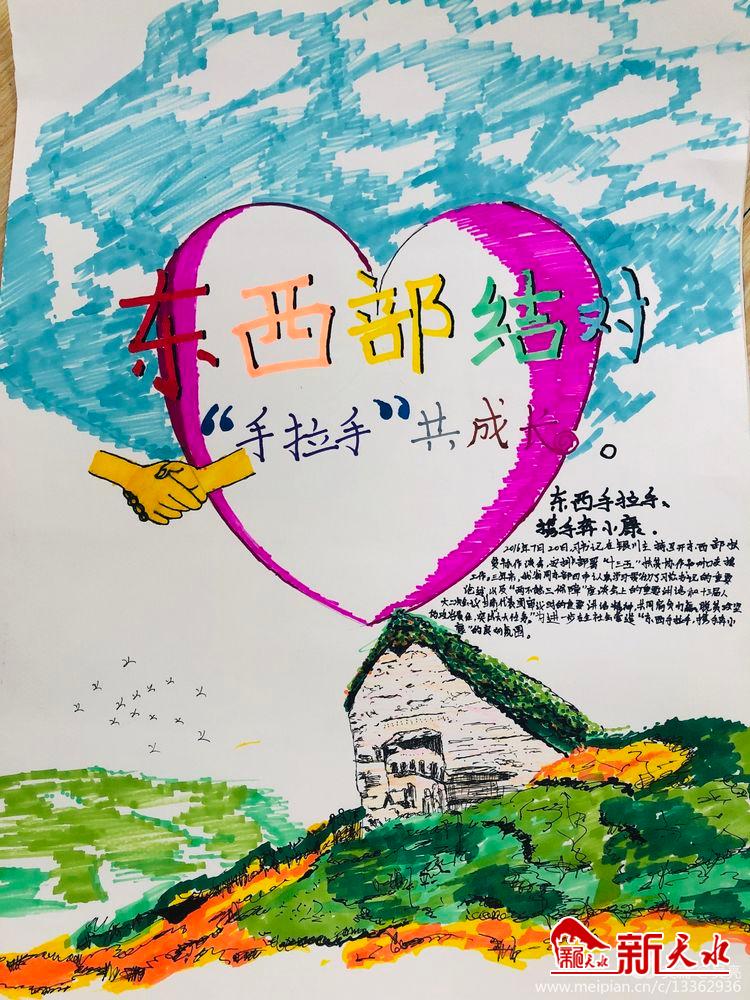 东西部结对
“手拉手”共成长。
东西手拉手、
携手奔小康.
2016年7月20日,习书记在银川主持召开东西部扶
贫协作 部署“十三五”扶贫协作和对口支援
工作,三年来, 了习总书记的重要
论述,以及“两不愁三保障”座谈会上的重要讲话和十三届人
大二次会议 代表团 重要讲话精神,
进一步在全社会营造“东西手拉手,携手奔小
康”的良好氛围。
新天水
www.meipian.cn/c/13362936